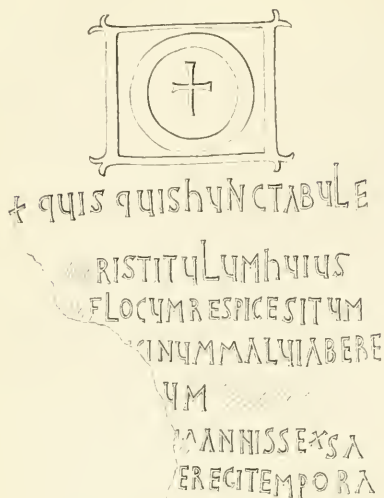 + QUIS QUIShUNCTABULE
RISTITULUMhUIUS
FLOCUMRESPICESITUM
CINUMMALUIABERE
UM
MANNISSEXSA
ERECITEMPORA